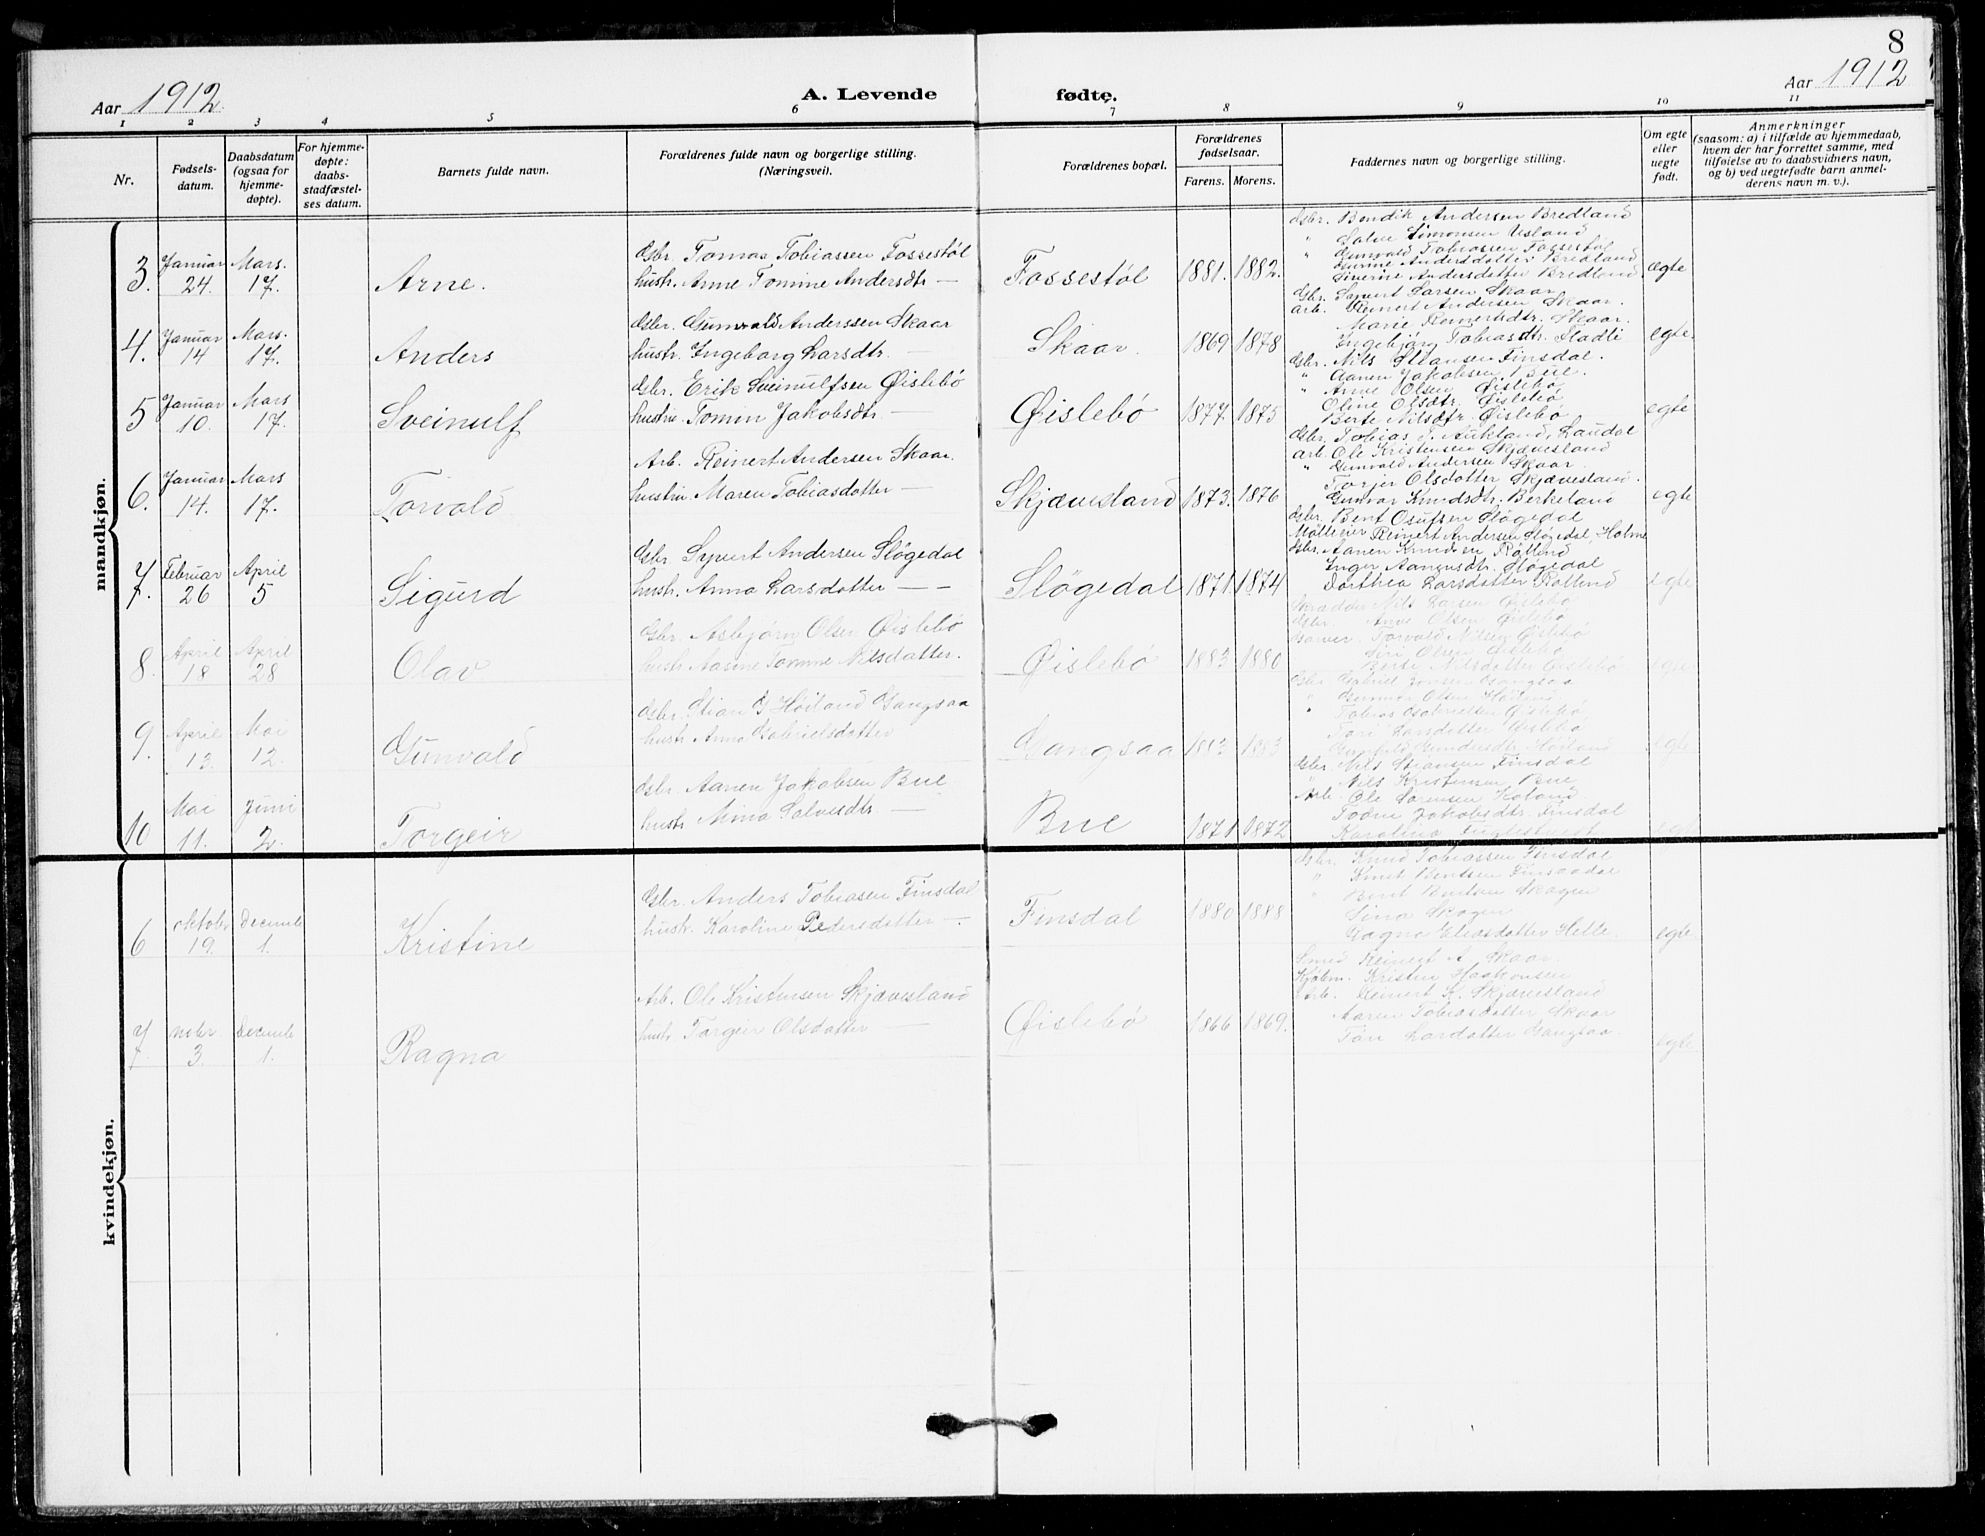 8
Aar 1912. A. Levende fødte. Aar 1912
1 2 3 4 5 6 7 8 9 10 11
Nr.
Fødsels-
datum.
Daabsdatum
(ogsaa for
hjemme-
døpte).
For hjemme-
døpte:
daabs-
stadfæstel-
ses datum.
Barnets fulde navn.
Forældrenes fulde navn og borgerlige stilling.
(Næringsvei).
Forældrenes bopæl.
Forældrenes
fødselsaar.
Farens. Morens.
Faddernes navn og borgerlige stilling.
Om egte
eller
uegte
født.
Anmerkninger
(saasom: a) i tilfælde av hjemmedaab,
hvem der har forrettet samme, med
tilføielse av to daabsvidners navn,
og b) ved uegtefødte barn anmel-
derens navn m. v.).
mandkjøn.
3. Januar 24. Mars. 17. Arne.
Gbr. Tomas Tobiassen Fossestøl
hustr. Anne Tomine Andersdtr —
Fossestøl 1881. 1882.
Gbr. Bendik Andersen Bredland
" Salve Simonsen Usland
" Gunvald Tobiassen Fossestøl
Gunne Andersdotter Bredland
Severine Andersdotter Bredland
ægte
4. Januar 14 Mars. 17. Anders
Gbr. Gunvald Anderssen Skaar
hustr. Ingeborg Larsdtr. —
Skaar. 1869 1878
Gbr. Syvert Larsen Skaar
arb. Reinert Andersen Skaar.
Marie Reinertsdtr. Skaar.
Ingebjørg Tobiasdtr.
Gbr. Nils Stiansen Finsdal.
egte.
5 Januar 10. Mars 17. Sveinulf
Gbr. Erik Sveinulfsen Øislebø
hustru. Tomin Jakobsdtr. —
Øislebø 1877. 1875
" Aanen Jakobsen Bue.
" Arne Olsen Øislebø
Oline Olsdtr. Øislebø
Berte Nilsdtr. Øislebø
Gbr. Tobias T. Aukland, Laudal
egte
6. Januar 14. Mars 17. Torvald
Arb. Reinert Andersen Skaar.
hustru Maren Tobiasdotter —
Skjævesland 1873. 1876
arb. Ole Kristensen Skjævesland
" Gunvald Andersen Skaar.
Torjer Olsdotter Skjævesland.
Gunvor Knudsdtr. Berkeland
egte
7. Februar 26 April 5 Sigurd
Gbr. Syvert Andersen Sløgedal
hustr. Anna Larsdotter — —
Sløgedal 1871. 1874
Gbr. Bent Osufsen Sløgedal
Mølleeier Reinert Andersen Sløgedal, Holme
Gbr. Aanen Knudsen
Inger Aanensdtr. Sløgedal
Dorthea Larsdotter
egte
8. April 18 April 28 Olav
Gbr. Asbjørn Olsen Øislebø
hustr. Aasine Tomine Nilsdatter.
Øislebø 1883 1880
Skrædder Nils Larsen Øislebø
Gbr. Arne Olsen Øislebø
Garver Torvald Nilsen Øislebø
Siri Olsen Øislebø
Berte Nilsdotter Øislebø
egte
9. April 13. Mai 12. Gunvald
Gbr. Stian G. Høiland Gangsaa
hustr. Anna Gabrielsdotter
Gangsaa 1883 1883
Gbr. Gabriel Jonsen Gangsaa
" Gunnar Olsen Høiland
" Tobias Gabrielsen Øislebø
Tori Larsdotter Øislebø
Gunhild Gundersdtr. Høiland
egte
10 Mai 11. Juni 2. Torgeir
Gbr. Aanen Jakobsen Bue
hustr Mina Salvesdtr. —
Bue 1871. 1872
Gbr. Nils Stiansen Finsdal
" Nils Kristensen Bue
Arb. Ole Sørensen
Todne Jakobsdtr. Finsdal
Karoline
egte
kvindekjøn.
6 oktober 19. Decembe 1. Kristine
Gbr. Anders Tobiasen Finsdal
hustr. Karoline Pedersdotter —.
Finsdal 1880 1888
Gbr. Knud Tobiassen Finsdal
" Knut Bentsen Finsaadal
" Bent Bentsen Skogen
Sina Skogen
Gagna Eliasdotter Helle.
egte
7. nobr. 3. Decembe 1. Ragna
Arb. Ole Kristensen Skjævesland
hustr. Torgeir Olsdatter —
Øislebø 1866 1869.
Smed Reinert A. Skaar.
Kjøbm. Kristen Haakonsen
Arb. Reinert K. Skjævesland
Aanen Tobiasdatter Skaar
Tori Larsdotter Gangsaa.
egte